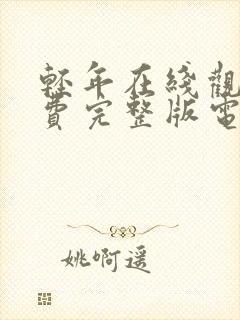 轻年在线觀
費完整版電
姚啊遥